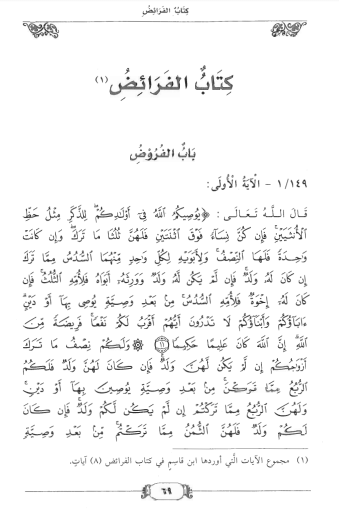 كِتَابُ الفَرَائِضِ
كِتَابُ الفَرَائِضِ (١)
بَابُ الفُرُوْضِ
١/١٤٩ - الْآيَةُ الْأُولَى:
قَالَ اللَّهُ تَعَالَى: ﴿يُوصِيكُمُ اللَّهُ فِي أَوْلَادِكُمْ لِلذَّكَرِ مِثْلُ حَظِّ
الْأُنثَيَيْنِ فَإِن كُنَّ نِسَاءً فَوْقَ اثْنَتَيْنِ فَلَهُنَّ ثُلُثَا مَا تَرَكَ وَإِن كَانَتْ
وَاحِدَةً فَلَهَا النِّصْفُ وَلِأَبَوَيْهِ لِكُلِّ وَاحِدٍ مِّنْهُمَا السُّدُسُ مِمَّا تَرَكَ
إِن كَانَ لَهُ وَلَدٌ فَإِن لَّمْ يَكُن لَّهُ وَلَدٌ وَوَرِثَهُ أَبَوَاهُ فَلِأُمِّهِ الثُّلُثُ فَإِن
كَانَ لَهُ إِخْوَةٌ فَلِأُمِّهِ السُّدُسُ مِنْ بَعْدِ وَصِيَّةٍ يُوصِي بِهَا أَوْ دَيْنٍ
ءَابَاؤُكُمْ وَأَبْنَاؤُكُمْ لَا تَدْرُونَ أَيُّهُمْ أَقْرَبُ لَكُمْ نَفْعًا فَرِيضَةً مِّنَ
اللَّهِ إِنَّ اللَّهَ كَانَ عَلِيمًا حَكِيمًا ۝١١ ۞ وَلَكُمْ نِصْفُ مَا تَرَكَ
أَزْوَاجُكُمْ إِن لَّمْ يَكُن لَّهُنَّ وَلَدٌ فَإِن كَانَ لَهُنَّ وَلَدٌ فَلَكُمُ
الرُّبُعُ مِمَّا تَرَكْنَ مِنْ بَعْدِ وَصِيَّةٍ يُوصِينَ بِهَا أَوْ دَيْنٍ
وَلَهُنَّ الرُّبُعُ مِمَّا تَرَكْتُمْ إِن لَّمْ يَكُن لَّكُمْ وَلَدٌ فَإِن كَانَ
لَكُمْ وَلَدٌ فَلَهُنَّ الثُّمُنُ مِمَّا تَرَكْتُم مِّنْ بَعْدِ وَصِيَّةٍ
(١) مجموع الآيات الَّتي أوردها ابن قاسِم في كتاب الفرائض (٨) آياتٍ.
٦٩